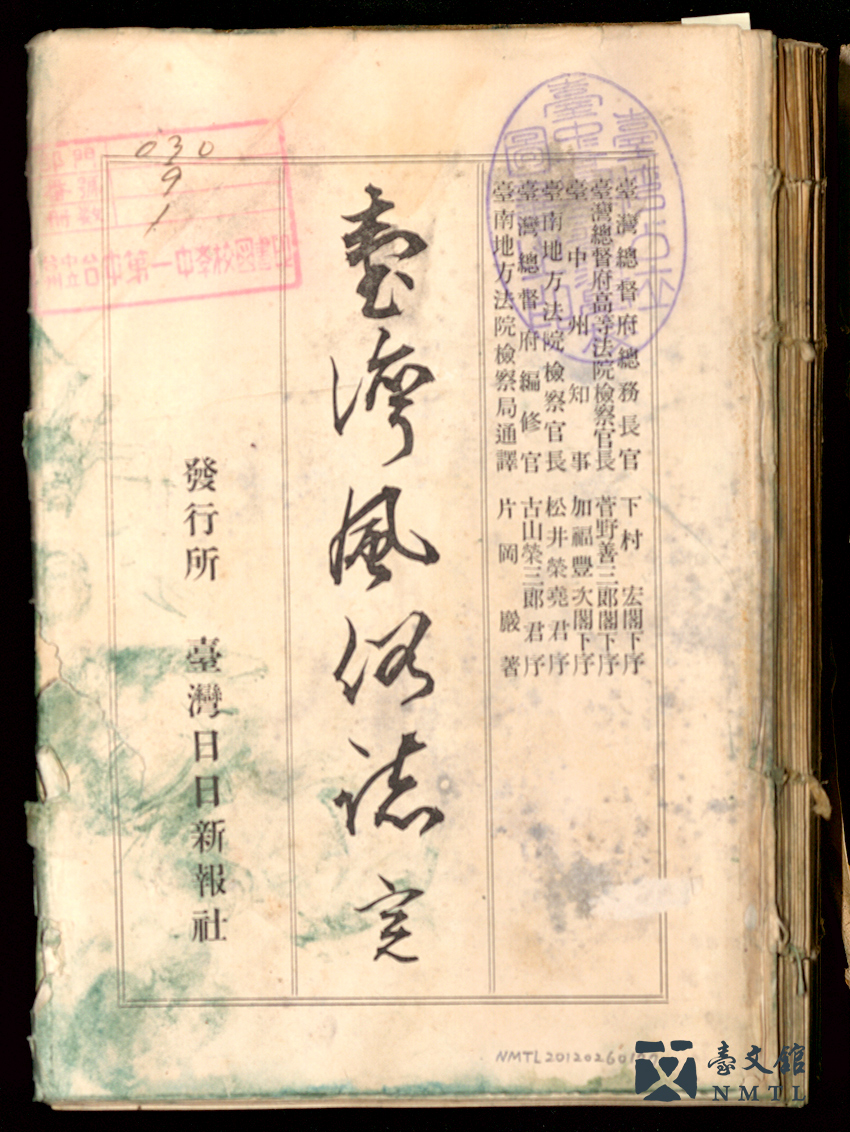 臺灣總督府總務長官 下村 宏閣下序
臺灣總督府高等法院檢察官長 菅野善三郎閣下序
臺中州知事 加福豐次閣下序
臺南地方法院檢察官長 松井榮堯君序
臺灣總督府編修官 古山榮三郎君序
臺南地方法院檢察局通譯 片岡巖著
臺灣風俗誌 完
發行所 臺灣日日新報社
030
9
1
台中第一中學校圖書印
NMTL20120260
臺文館
NMTL